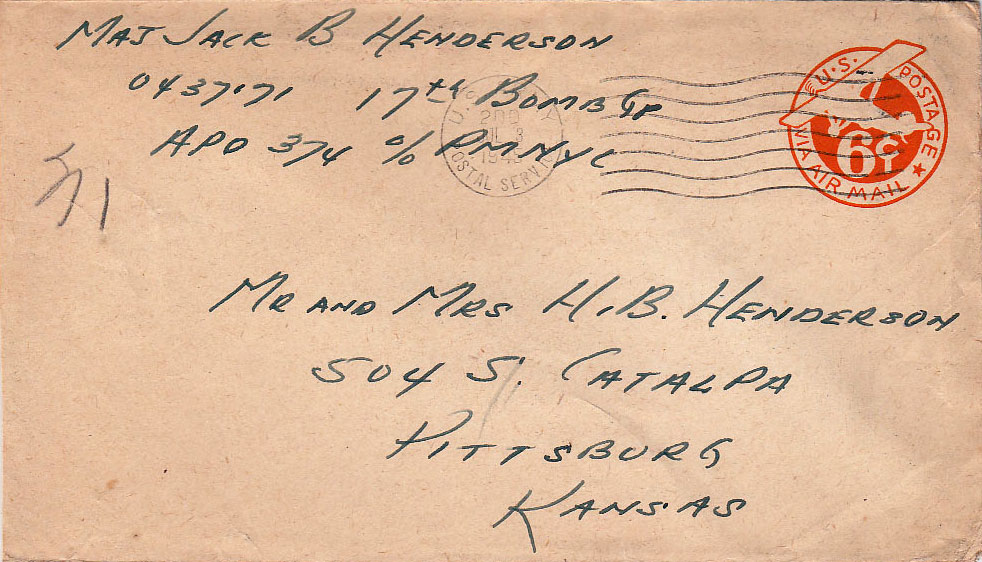 MAJ JACK B HENDERSON
0437171 17th BOMB GP
APO 374 c/o PM NYC
U.S. POSTAGE
6¢
VIA AIR MAIL
U.S.
200
JUL 3
194
POSTAL SERVICE
MR AND MRS H.B. HENDERSON
504 S. CATALPA
PITTSBURG
KANSAS